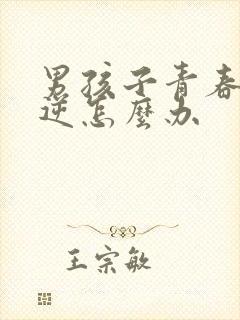 男孩子青春
逆怎麼办
王宗敏